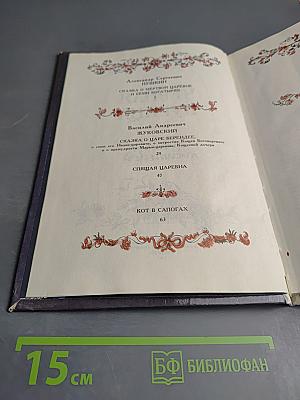 Александр Сергеевич
ПУШКИН
СКАЗКА О МЕРТВОЙ ЦАРЕВНЕ
И СЕМИ БОГАТЫРЯХ
Василий Андреевич
ЖУКОВСКИЙ
СКАЗКА О ЦАРЕ БЕРЕНДЕЕ,
о сыне его Иване-царевиче, о хитростях Кощея Бессмертного
и о премудрости Марьи-царевны, Кощеевой дочери
29
СПЯЩАЯ ЦАРЕВНА
45
КОТ В САПОГАХ
63
15 см
БФ БИБЛИОФАН